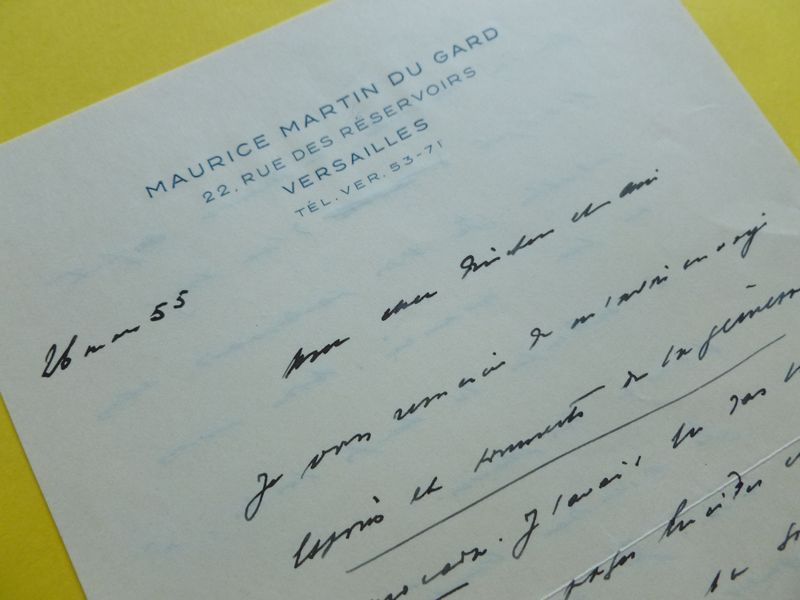 MAURICE MARTIN DU GARD
22, RUE DES RÉSERVOIRS
VERSAILLES
TÉL. VER. 53-71
26 mars 55
Mon cher Directeur et ami
Je vous remercie de m'avoir envoyé
Espoirs et tourments de la jeunesse
J'avais lu
pages lucides